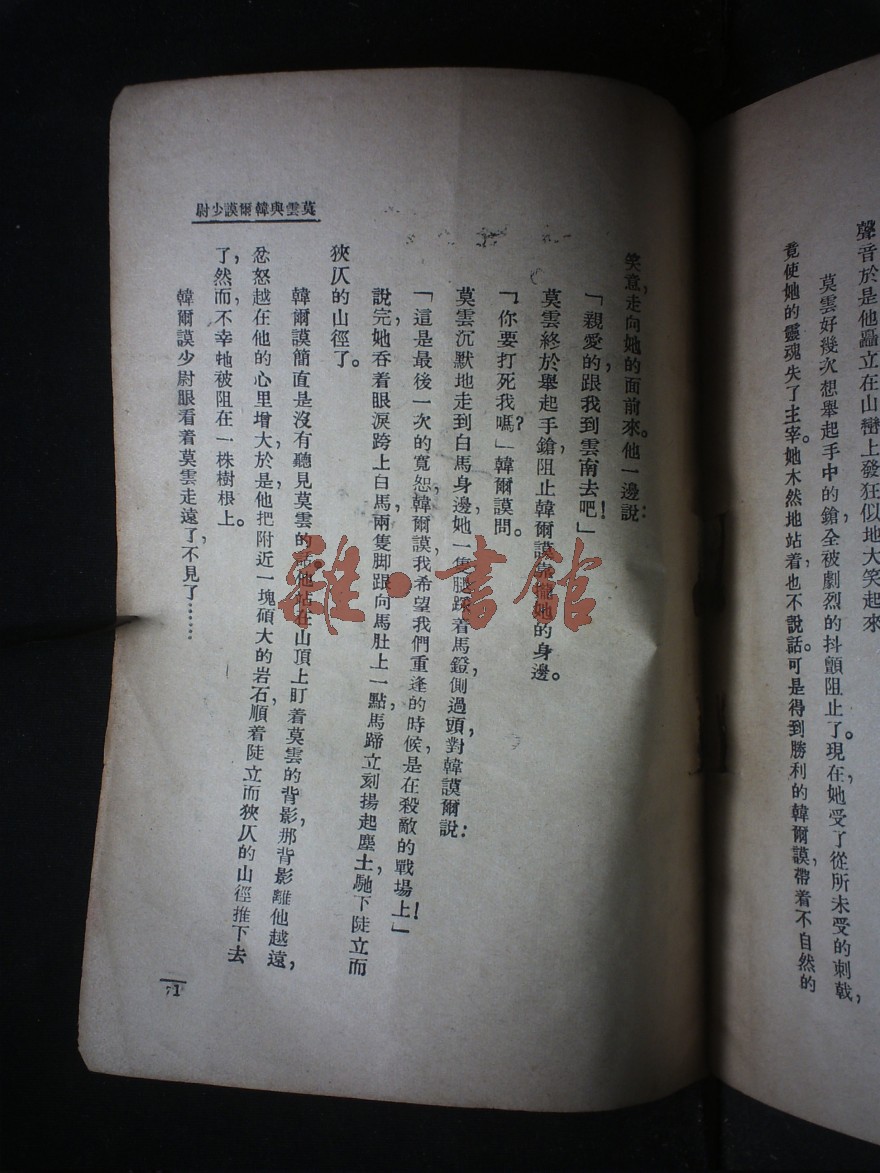 聲音於是他矗立在山巒上發狂似地大笑起來
莫雲好幾次想舉起手中的鎗，全被劇烈的抖顫阻止了。現在她受了從所未受的刺戟，
竟使她的靈魂失了主宰。她木然地站着也不說話。可是得到勝利的韓爾謨，帶着不自然的
笑意，走向她的面前來。他一邊說：
「親愛的，跟我到雲南去吧！」
莫雲終於舉起手鎗，阻止韓爾謨靠攏她的身邊。
「你要打死我嗎？」韓爾謨問。
莫雲沉默地走到白馬身邊，她一隻腿踩着馬鐙，側過頭，對韓謨爾說：
「這是最後一次的寬恕，韓爾謨，我希望我們重逢的時候，是在殺敵的戰場上！」
說完，她吞着眼淚，跨上白馬，兩隻脚跟向馬肚上一點，馬蹄立刻揚起塵土，馳下陡立而
狹仄的山徑了。
韓爾謨簡直是沒有聽見莫雲的話。他站在山頂上盯着莫雲的背影，那背影離他越遠，
忿怒越在他的心里增大，於是他把附近一塊碩大的岩石，順着陡立而狹仄的山徑推下去
了，然而，不幸牠被阻在一株樹根上。
韓爾謨少尉眼看着莫雲走遠了，不見了……
莫雲與韓爾謨少尉
71
雜·書館